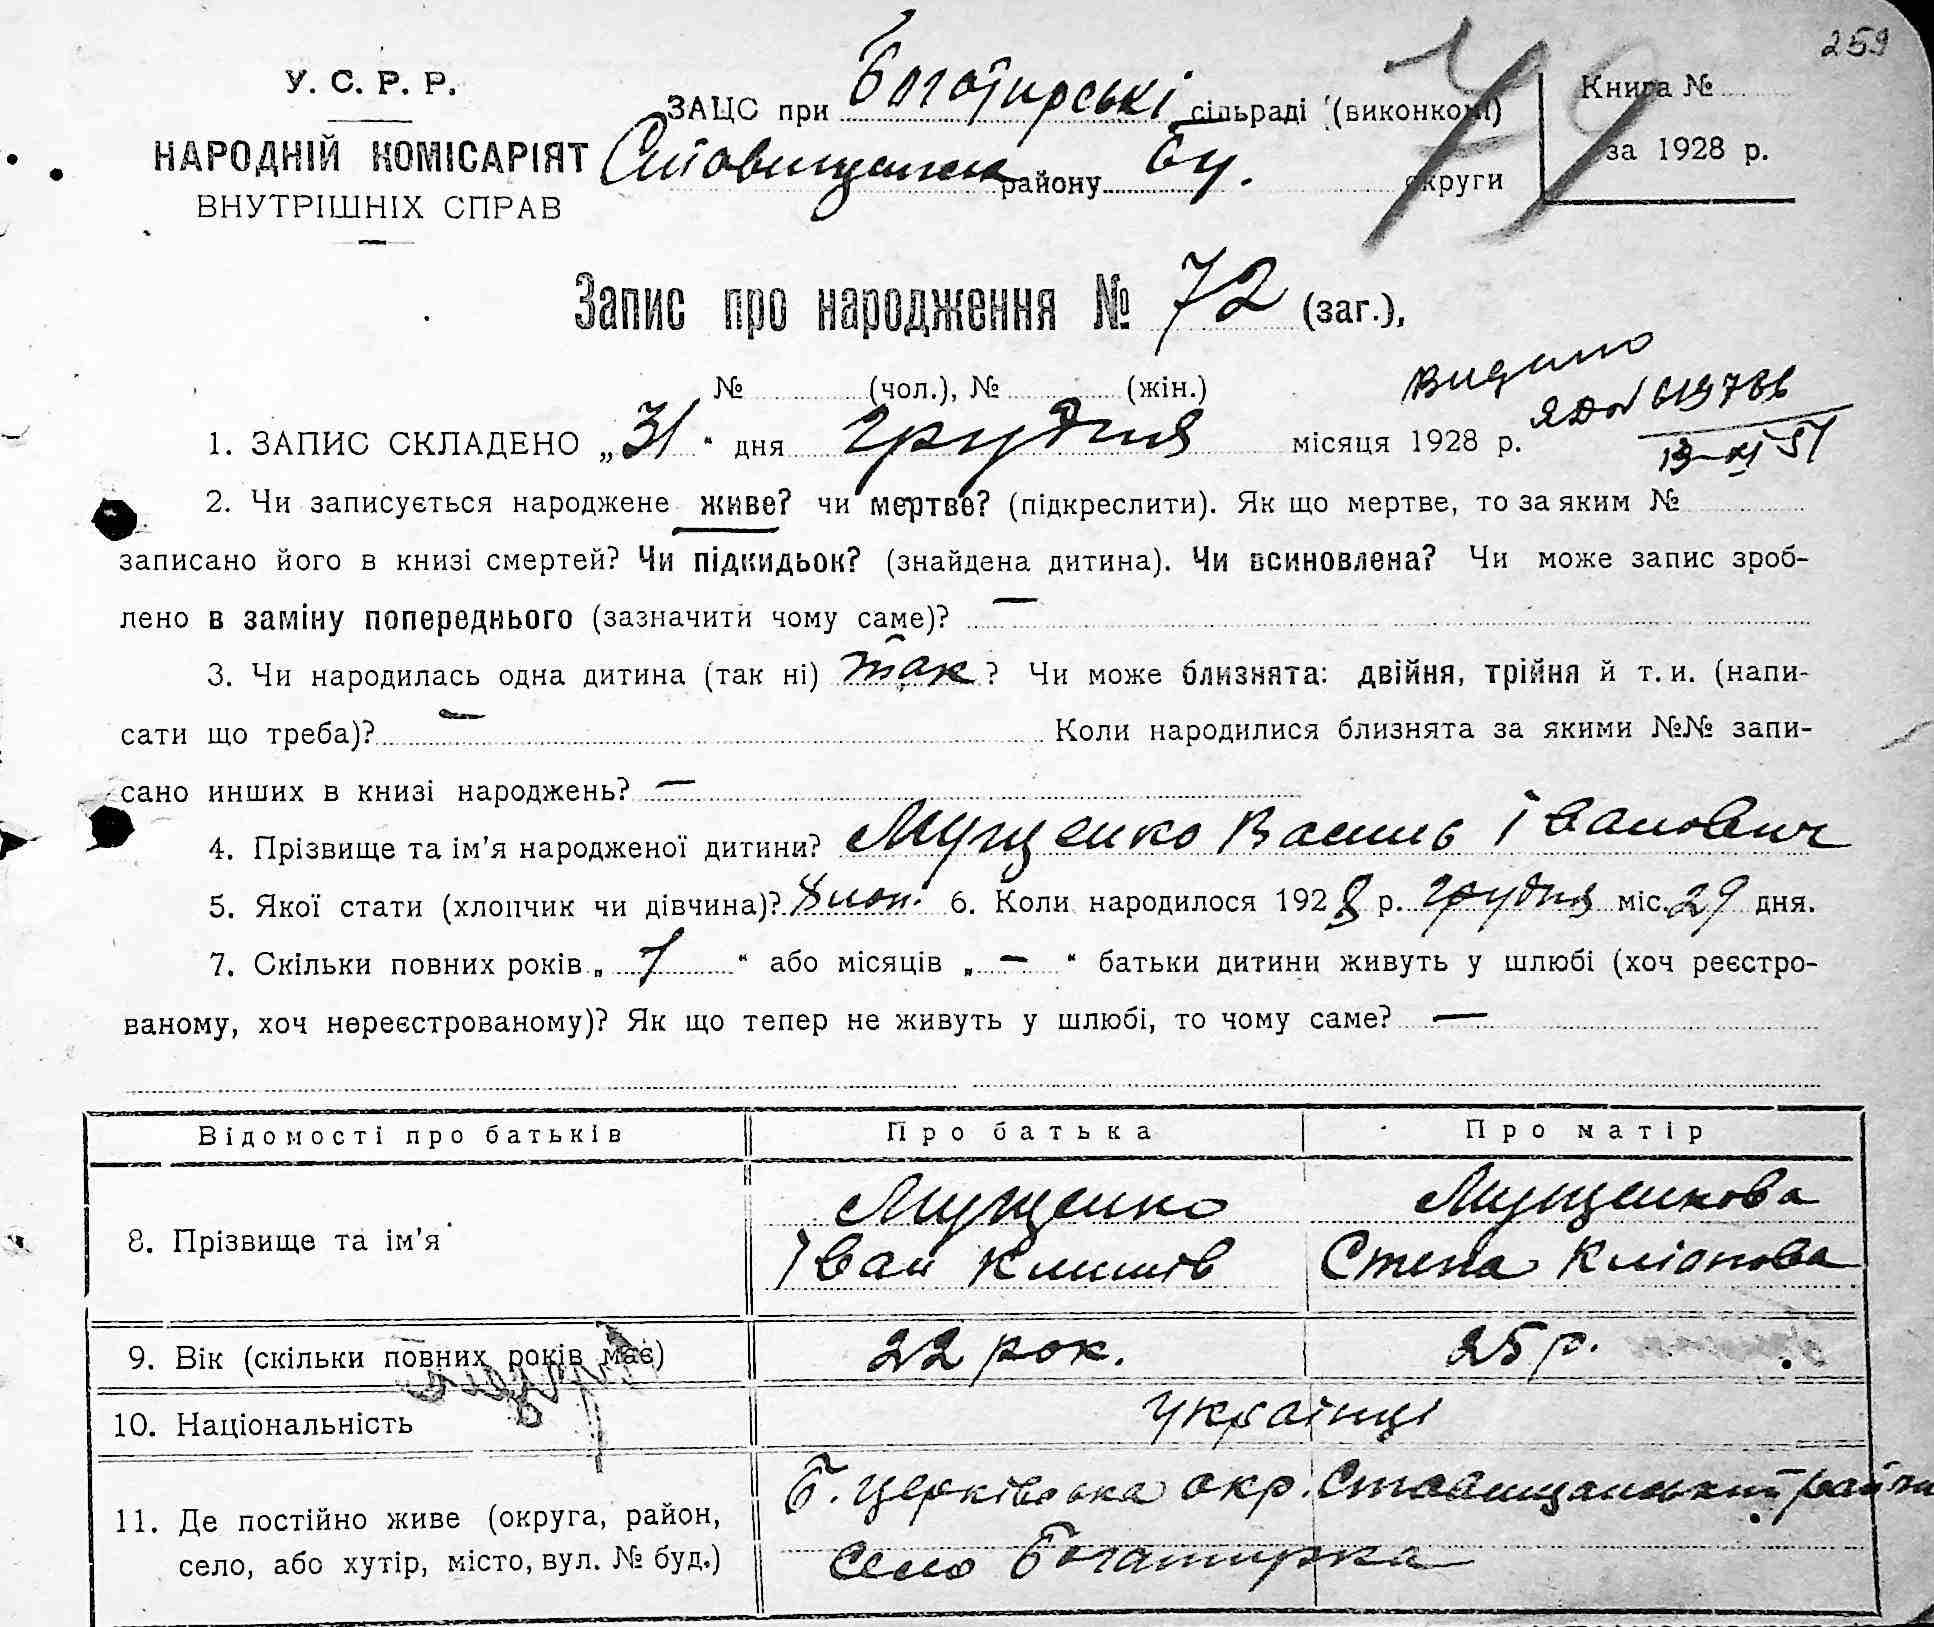 259
У. С. Р. Р.
НАРОДНІЙ КОМІСАРІЯТ
ВНУТРІШНІХ СПРАВ
ЗАЦС при Богатирські сільраді (виконкомі)
району Бц. округи
79
Книга №
за 1928 р.
Запис про народження № 72 (заг.),
№ (чол.), № (жін.)
Видано
ЯД № 619766
13-XI 51
1. ЗАПИС СКЛАДЕНО „31“ дня грудня місяця 1928 р.
2. Чи записується народжене живе? чи мертве? (підкреслити). Як що мертве, то за яким №
записано його в книзі смертей? Чи підкидьок? (знайдена дитина). Чи всиновлена? Чи може запис зроб-
лено в заміну попереднього (зазначити чому саме)? —
3. Чи народилась одна дитина (так ні) так? Чи може близнята: двійня, трійня й т. и. (напи-
сати що треба)? — Коли народилися близнята за якими №№ запи-
сано инших в книзі народжень? —
4. Прізвище та ім’я народженої дитини? Мущенко Василь Іванович
5. Якої стати (хлопчик чи дівчина)? Хлоп. 6. Коли народилося 1928 р. грудня міс. 29 дня.
7. Скільки повних років „7“ або місяців „—“ батьки дитини живуть у шлюбі (хоч реєстро-
ваному, хоч нереєстрованому)? Як що тепер не живуть у шлюбі, то чому саме? —
Відомості про батьків Про батька Про матір
8. Прізвище та ім’я Мущенко Мущенкова
Іван Климів Степа
9. Вік (скільки повних років має) 22 рок. 25 р.
10. Національність Українці
11. Де постійно живе (округа, район, Б. Церківська окр. Ставищанський район
село, або хутір, місто, вул. № буд.) село Богатирка